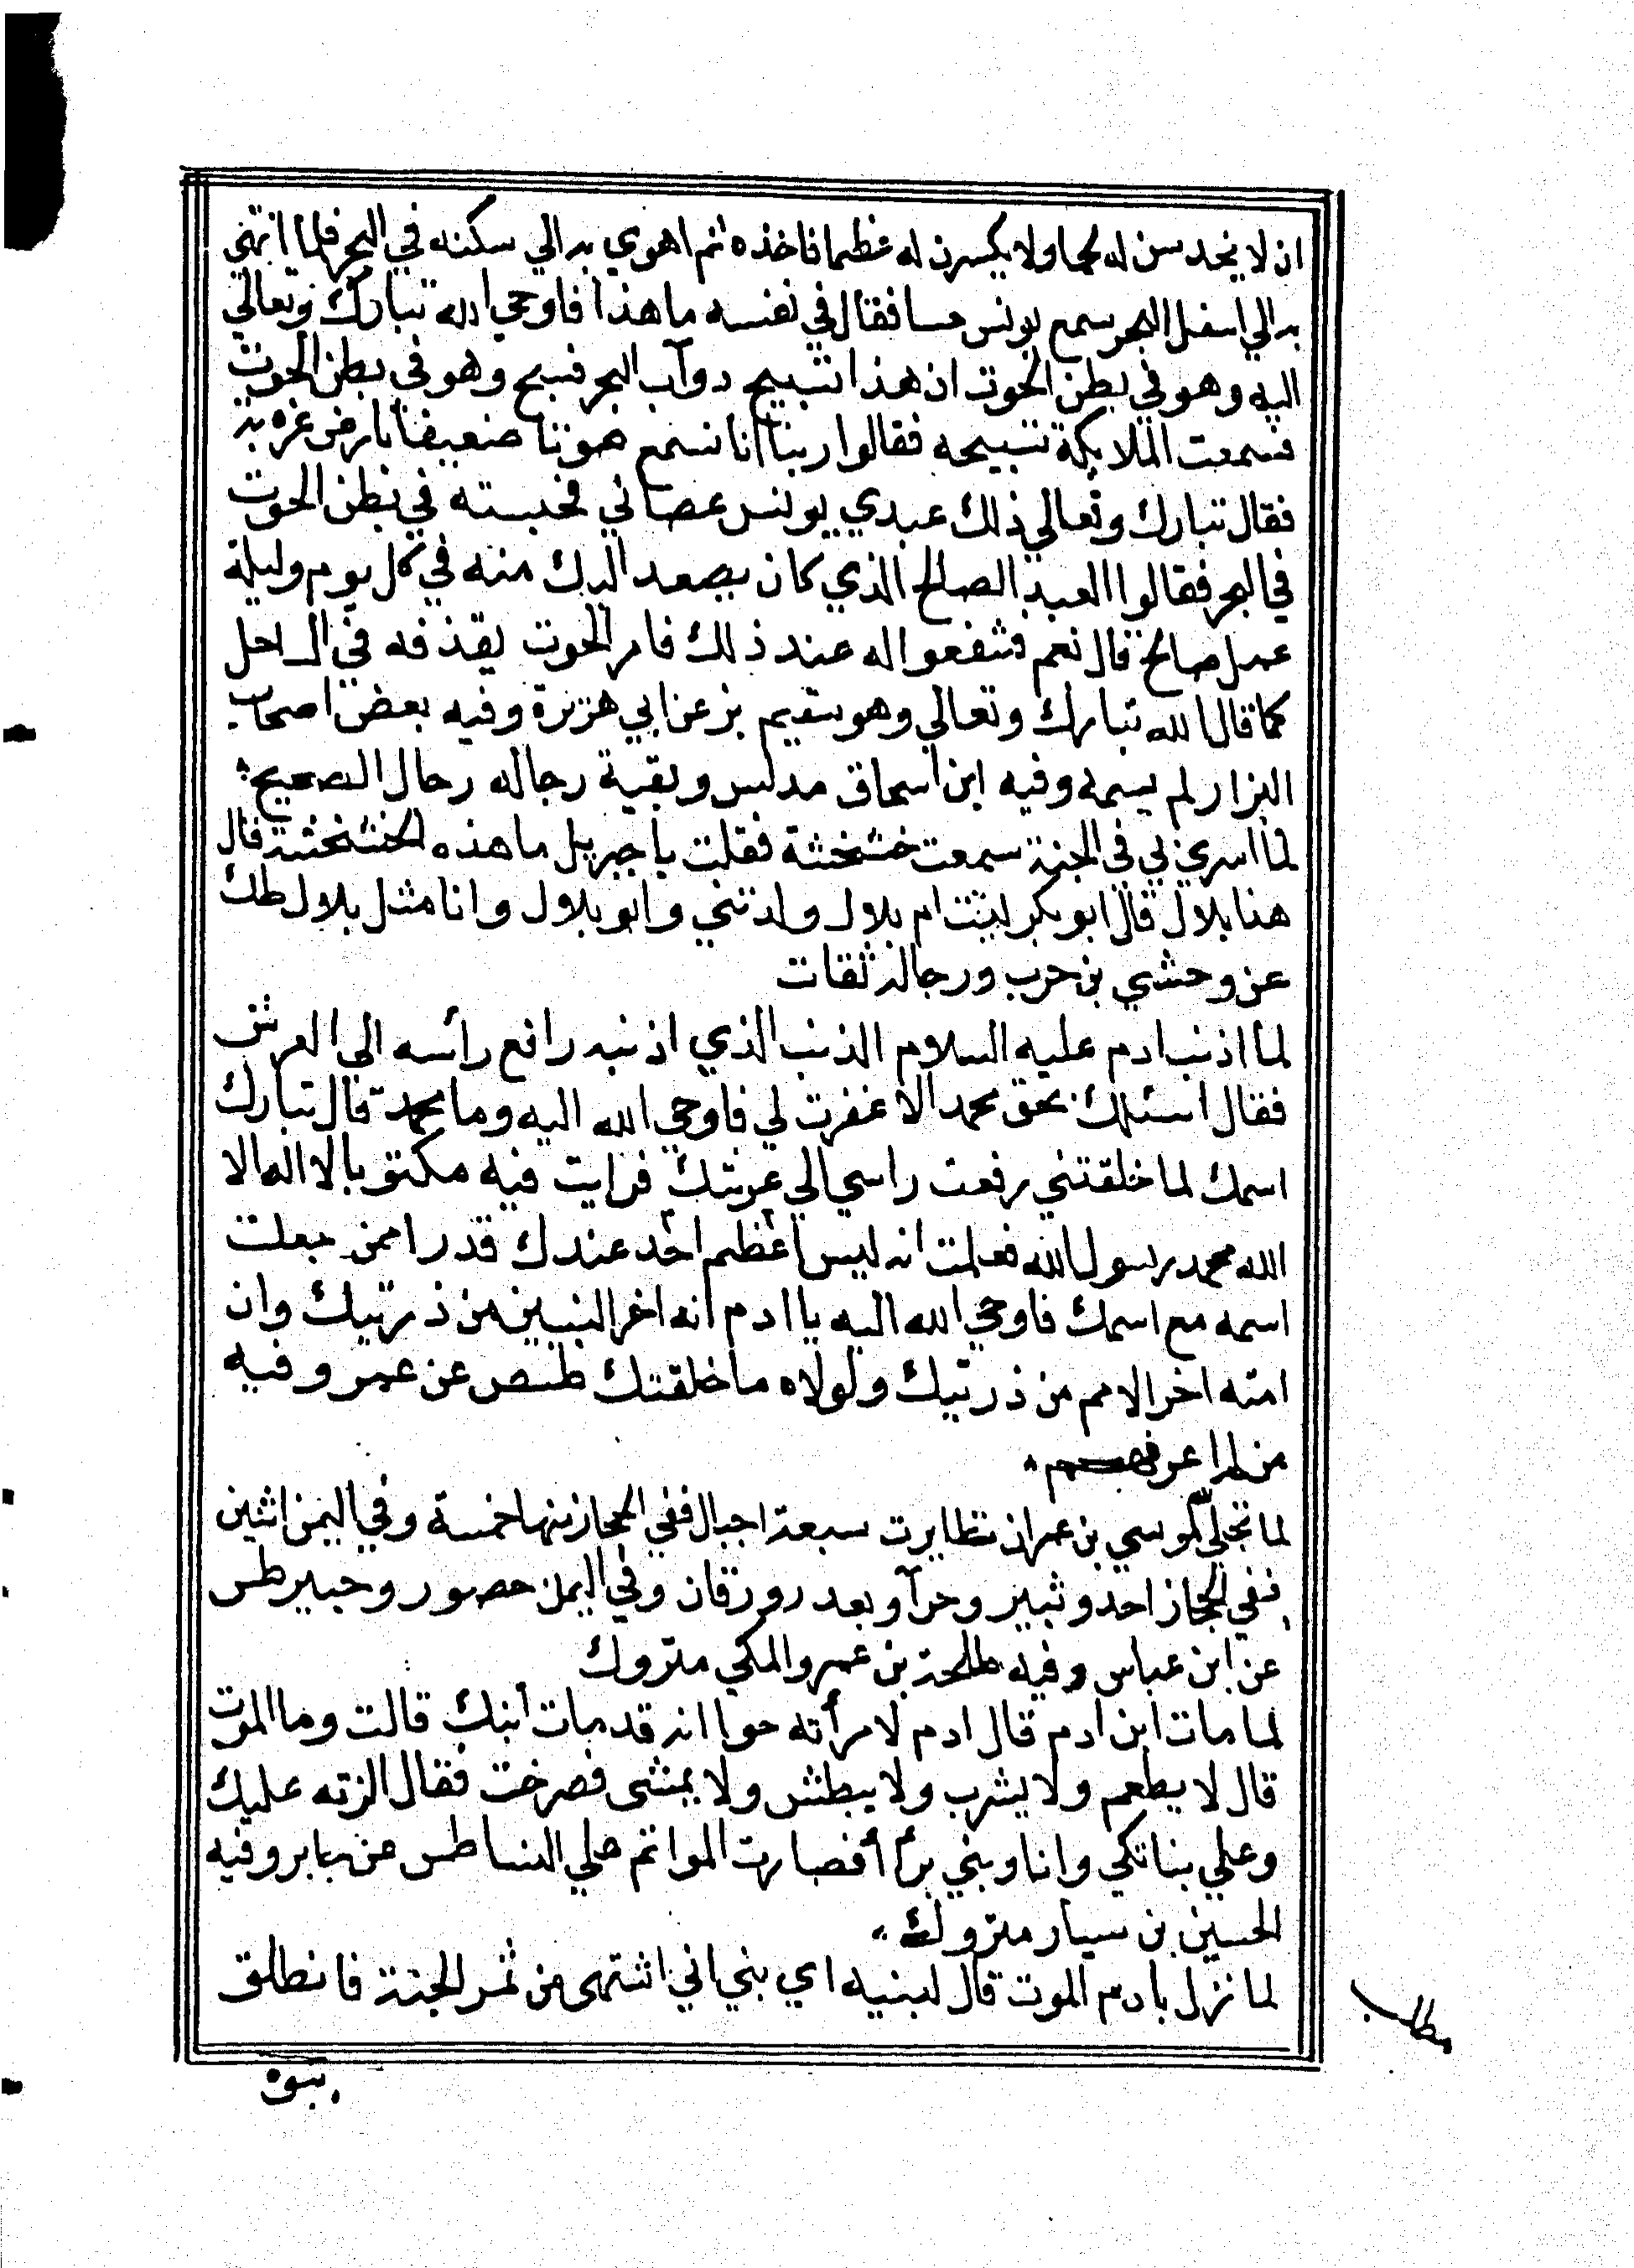 ان لا يخدسن له لحما ولا يكسرن له عظما فاخذه ثم اهوي به الي سكنه في البحر فلما انتهي
به الي اسفل البحر سمع يونس حسا فقال في نفسه ما هذا فاوحي الله تبارك وتعالي
اليه وهو في بطن الحوت ان هذا تسبيح دوآب البحر فسبح وهو في بطن الحوت
فسمعت الملايكة تسبيحه فقالوا ربنا انا نسمع صوتا ضعيفا بارض غربة
فقال تبارك وتعالي ذلك عبدي يونس عصاني فحبسته في بطن الحوت
في البحر فقالوا العبد الصالح الذي كان يصعد اليك منه في كل يوم وليلة
عمل صالح قال نعم فشفعوا له عند ذلك فامر الحوت يقذفه في الساحل
كما قال الله تبارك وتعالي وهو سقيم بز عن ابي هريرة وفيه بعض اصحاب
البزار لم يسمه وفيه ابن اسحاق مدلس وبقية رجاله رجال الصحيح
لما اسري بي في الجنة سمعت خشخشة فقلت يا جبريل ما هذه الخشخشة قال
هذا بلال قال ابو بكر ليت ام بلال ولدتني وابو بلال وانا مثل بلال طك
عن وحشي بن حرب ورجاله ثقات
لما اذنب ادم عليه السلام الذنب الذي اذنبه رافع رأسه الي العرش
فقال اسئلك بحق محمد الا غفرت لي فاوحي الله اليه وما محمد قال تبارك
اسمك لما خلقتني رفعت راسي الي عرشك فرايت فيه مكتوبا لا اله الا
الله محمد رسول الله فعلمت انه ليس اعظم احد عندك قدرا ممن جعلت
اسمه مع اسمك فاوحي الله اليه يا ادم انه اخر النبيين من ذريتيك وان
امته اخر الامم من ذريتيك ولولاه ما خلقتك طسص عن عمر وفيه
من لم اعرفهم
لما تجلي لموسي بن عمران تطايرت سبعة اجبال ففي الحجاز منها خمسة وفي اليمن اثنين
ففي الحجاز احد وثبير وحرآ وبعد رورقان وفي اليمن حصور وحبير طس
عن ابن عباس وفيه طلحة بن عمرو المكي متروك
لما مات ابن ادم قال ادم لامرأته حوا انه قد مات أبنك قالت وما الموت
قال لا يطعم ولا يشرب ولا يبطش ولا يمشى فصرخت فقال الرنه عليك
وعلي بناتكي وانا وبني برأ أفصارت المواتم علي النسا طس عن جابر وفيه
الحسين بن سيار متروك
لما نزل بادم الموت قال لبنيه اي بني اني اشتهى من ثمر الجنة فانطلق
مطلب
بنوه